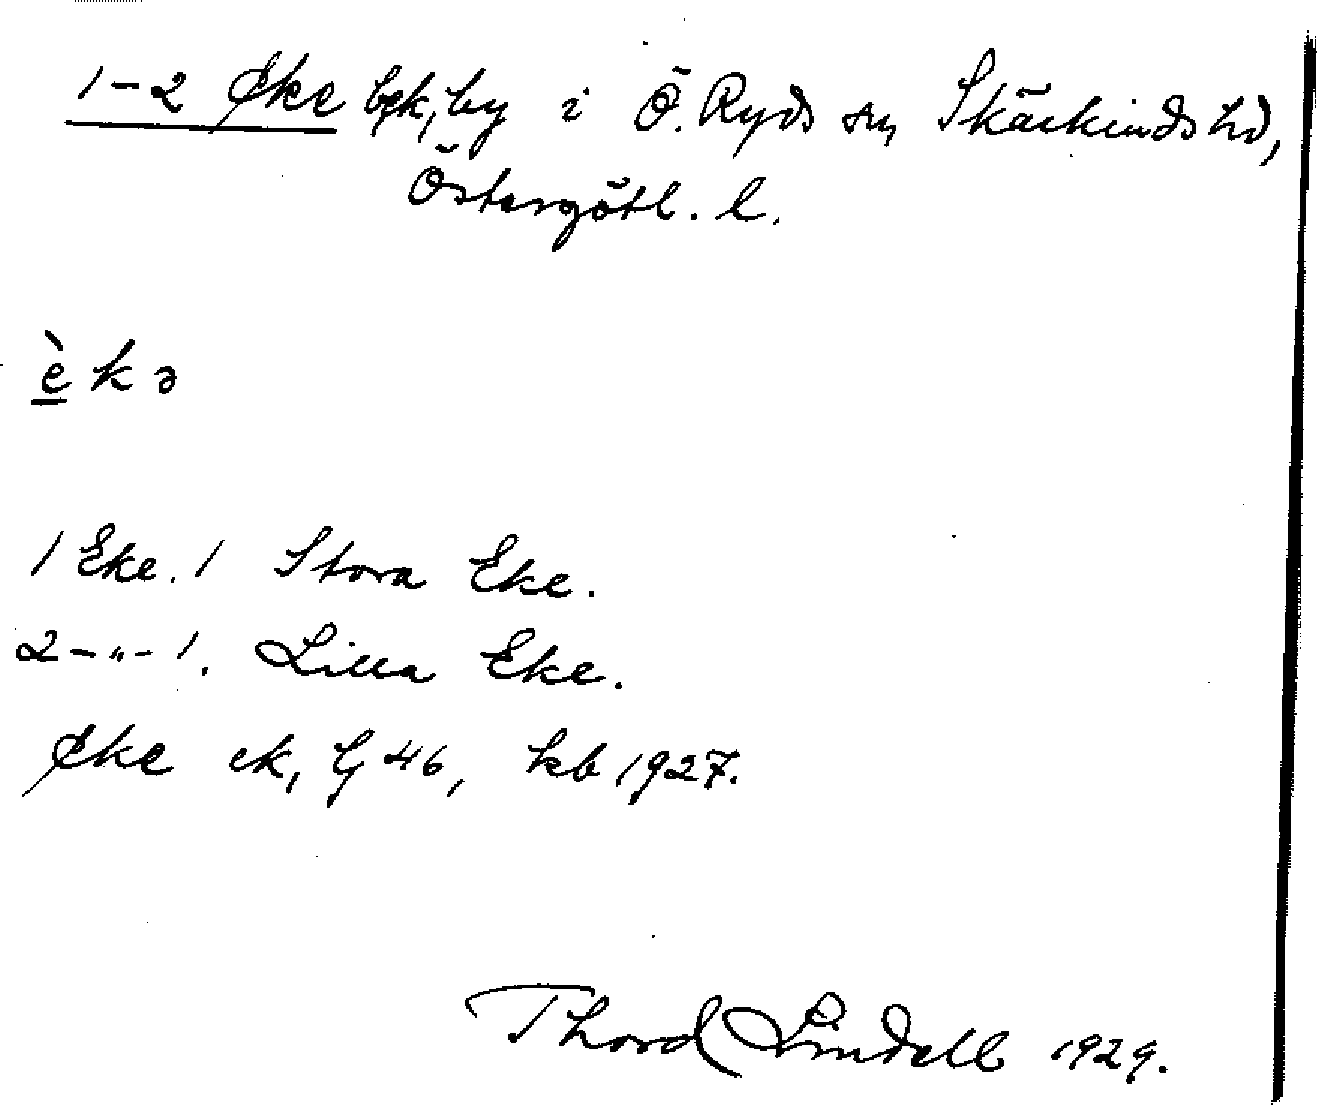 1-2 Eke bgk, by i Ö. Ryds sn, Skärkinds hd,
Östergötl. l.
è k ə
1 Eke. / Stora Eke.
2 -"- /. Lilla Eke.
Eke ek, G 46, kb 1927.
Thord Lindell 1929.